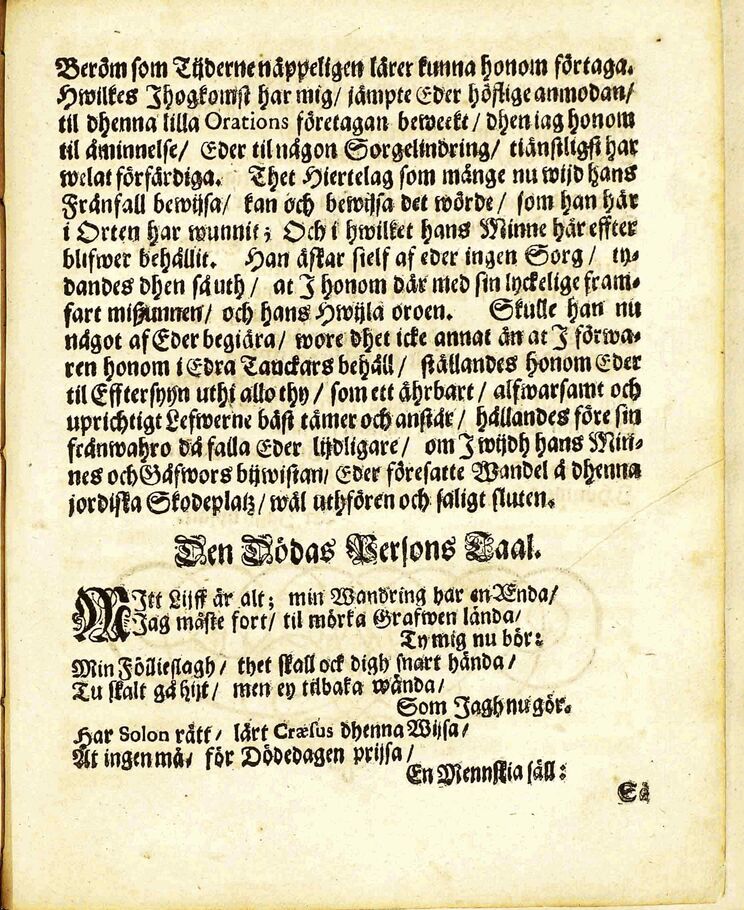 Beröm som Tijderne näppeligen lärer kunna honom förtaga.
Hwilkes Jhogkomst har mig/ jämpte Eder höflige anmodan/
til dhenna lilla Orations företagan beweekt/ dhen iag honom
til åminnelse/ Eder til någon Sorgelindring/ tiänstligst har
welat förfärdiga. Thet Hiertelag som månge nu wijd hans
Frånfall bewijsa/ kan och bewijsa det wörde/ som han här
i Orten har wunnit; Och i hwilket hans Minne här effter
blifwer behållit. Han äskar sielf af eder ingen Sorg/ ty-
dandes dhen så uth/ at J honom där med sin lyckelige fram-
fart mißunnen/ och hans Hwijla oroen. Skulle han nu
något af Eder begiära/ wore dhet icke annat än at J förwa-
ren honom i Edra Tanckars behåll/ ställandes honom Eder
til Efftersyyn uthi allo thy/ som ett ährbart/ alfwarsamt och
uprichtigt Lefwerne bäst tämer och anstår/ hållandes före sin
frånwahro då falla Eder lijdligare/ om J wijdh hans Min-
nes och Gåfwors bijwistan/ Eder föresatte Wandel å dhenna
jordiska Skodeplatz/ wäl uthfören och saligt sluten.
Den Dödas Persons Taal.
MJtt Lijff är alt; min Wandring har en Ænda/
Jag måste fort/ til mörka Grafwen lända/
Ty mig nu bör:
Min Föllieslagh/ thet skall ock digh snart hända/
Tu skalt gå hijt/ men ey tilbaka wända/
Som Jagh nu gör.
Har Solon rätt/ lärt Cræsus dhenna Wijsa/
At ingen må/ för Dödedagen prijsa/
En Mennskia säll:
Så